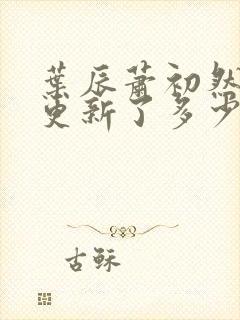 葉辰蕭初然
更新了多少
古穌